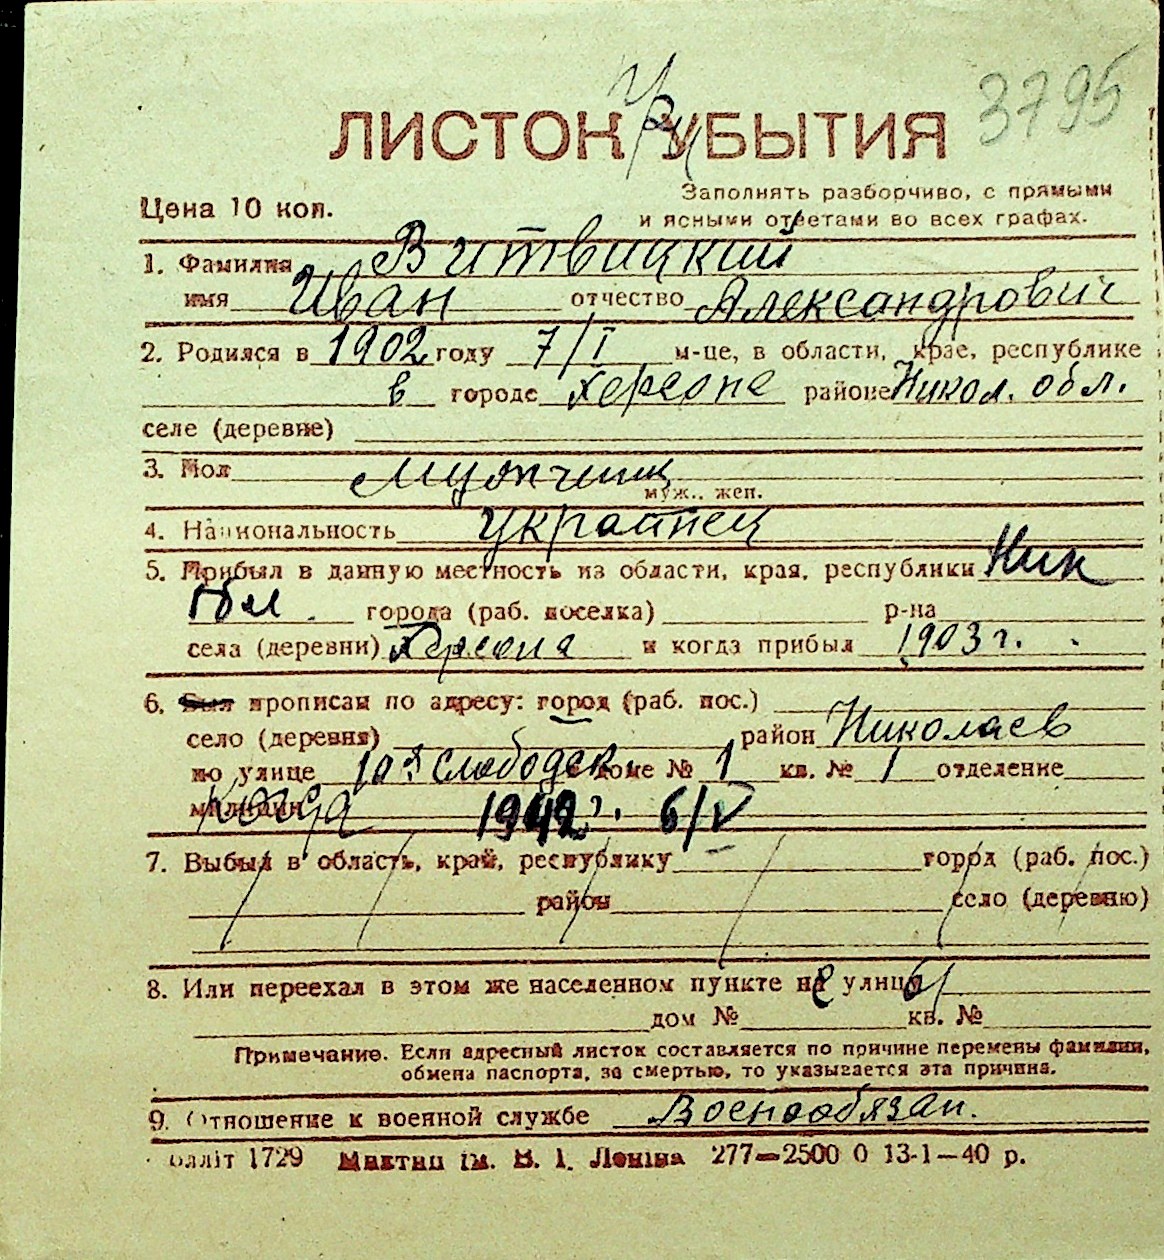 3795
ЛИСТОК УБЫТИЯ
Цена 10 коп.
Заполнять разборчиво, с прямыми
и ясными ответами во всех графах.
1. Фамилия Витвицкий
имя Иван отчество Александрович
2. Родился в 1902 году 7/I м-це, в области, крае, республике
в городе Херсоне районе Никол. обл.
селе (деревне)
3. Пол Мужчина
муж.. жен.
4. Национальность Украинец
5. Прибыл в данную местность из области, края, республики Ник
обл. города (раб. поселка) р-на
села (деревни) Херсона и когда прибыл 1903 г.
6. Был прописан по адресу: город (раб. пос.)
село (деревня) район Николаев
по улице 1а я Слободск. доме № 1 кв. № 1 отделение
милиции когда 1942 г. 6/V
7. Выбыл в область, край, республику город (раб. пос.)
район село (деревню)
8. Или переехал в этом же населенном пункте на улицу
дом № кв. №
Примечание. Если адресный листок составляется по причине перемены фамилии,
обмена паспорта, за смертью, то указывается эта причина.
9. Отношение к военной службе Военнообязан.
лліт 1729 ім. В. І. Леніна 277—2500 0 13-1—40 р.